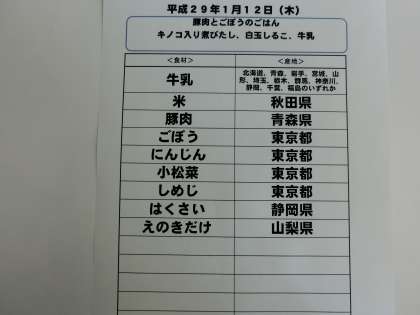 平成29年1月12日（木）
豚肉とごぼうのごはん
キノコ入り煮びたし、白玉しるこ、牛乳
＜食材＞ ＜産地＞
牛乳 北海道、青森、岩手、宮城、山
形、埼玉、栃木、群馬、神奈川、
静岡、千葉、福島のいずれか
米 秋田県
豚肉 青森県
ごぼう 東京都
にんじん 東京都
小松菜 東京都
しめじ 東京都
はくさい 静岡県
えのきだけ 山梨県